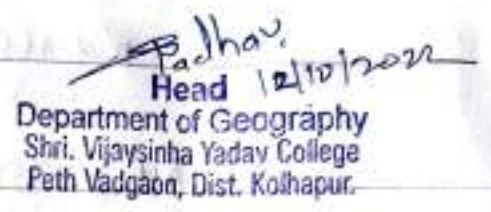 Jadhav.
Head 12/10/2022
Department of Geography
Shri. Vijaysinha Yadav College
Peth Vadgaon, Dist. Kolhapur.